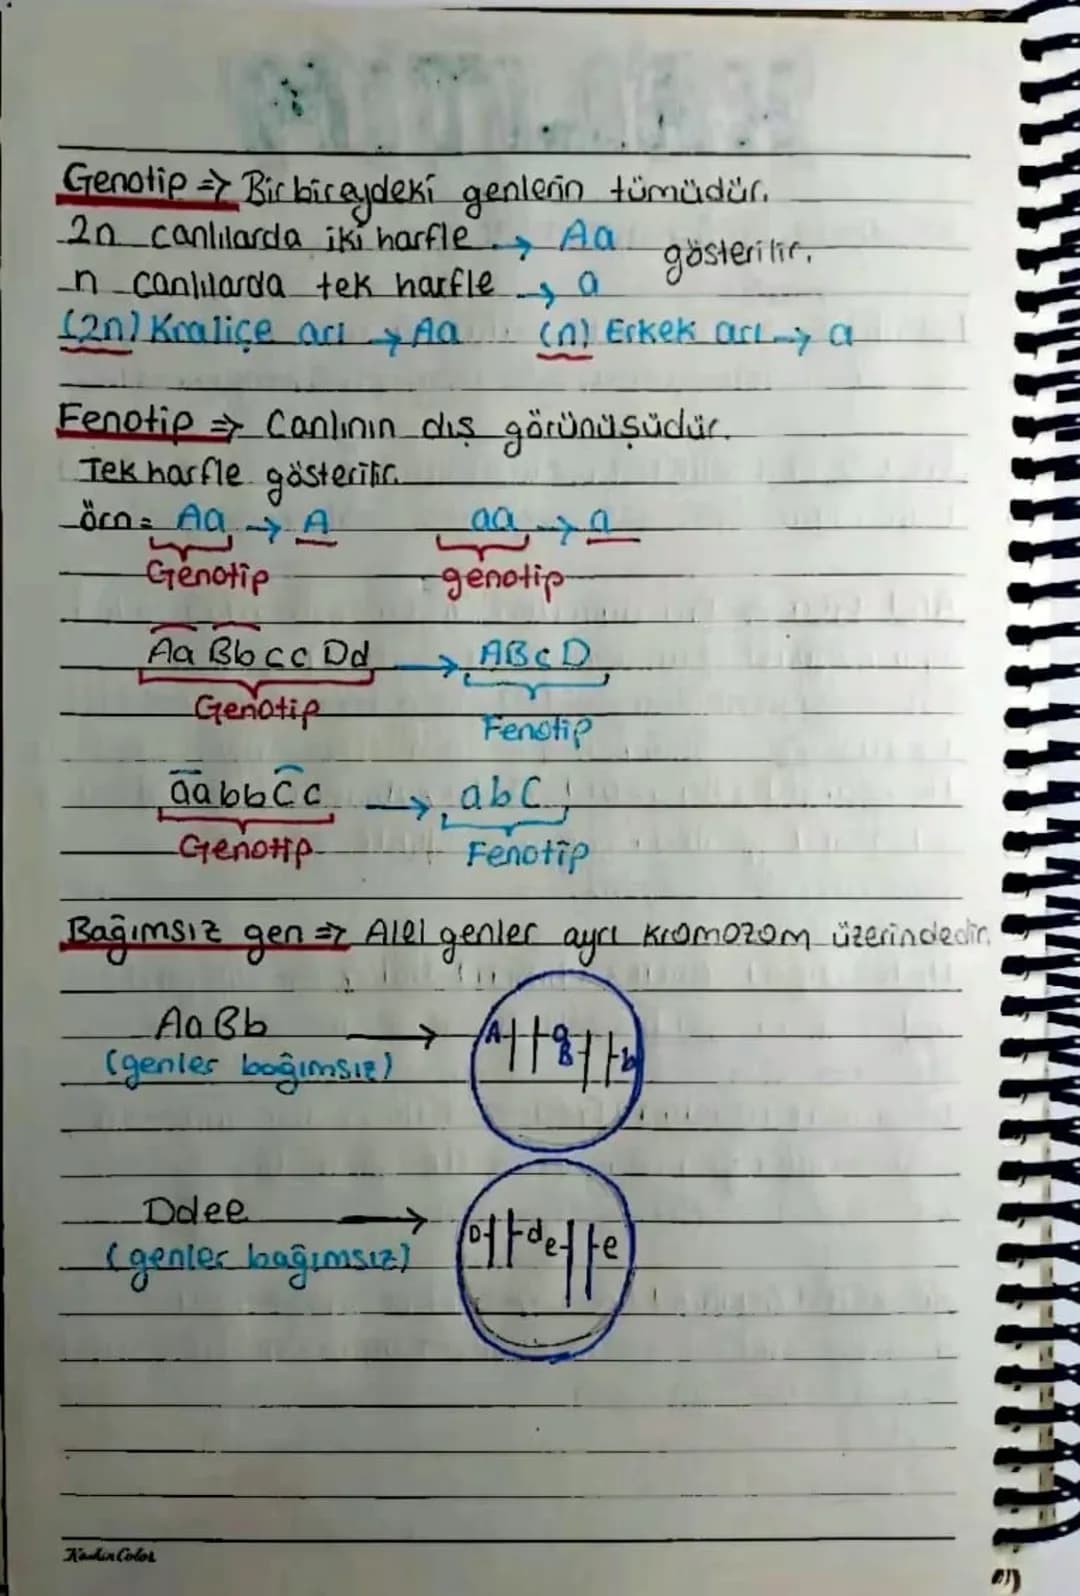 Genotip => Bir bireydeki genlerin tümüdür.
2n canlılarda iki harfle → Aa gösterilir.
n canlılarda tek harfle → a
(2n) Kraliçe arı → Aa (n) Erkek arı → a
Fenotip => Canlının dış görünüşüdür.
Tek harfle gösterilir.
örn = Aa → A aa → a
Genotip genotip
Aa Bb cc Dd → ABcD
Genotip Fenotip
aabbCc → abC
Genotip Fenotip
Bağımsız gen => Alel genler ayrı kromozom üzerindedir.
AaBb → A a B b
(genler bağımsız)
Ddee → D d e e
(genler bağımsız)
Kaskin Color